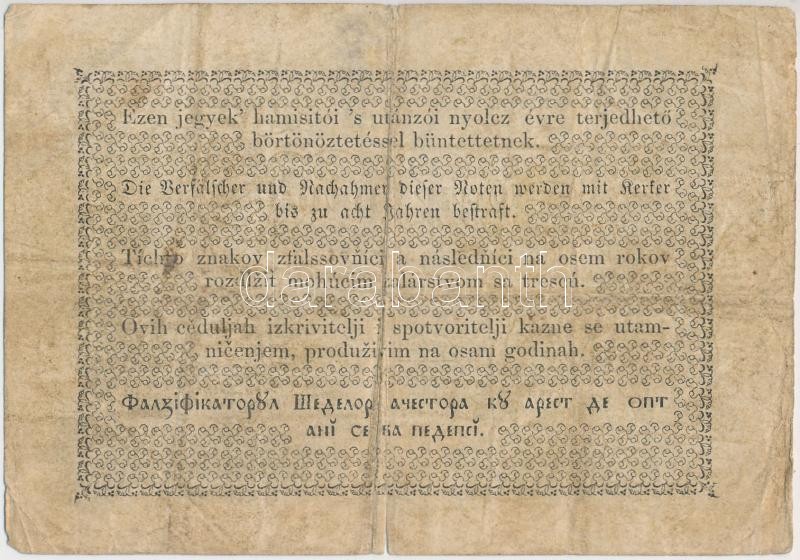 Ezen jegyek' hamisitói 's utánzói nyolcz évre terjedhető
börtönöztetéssel büntettetnek.
Die Verfälscher und Nachahmer dieser Noten werden mit Kerker
bis zu acht Jahren bestraft.
Tíchto znakov zfalssovňíci a následňíci na osem rokov
rozdlžiť mohúcím žalárstvom sa trescú.
Ovih ceduljah izkrivitelji i spotvoritelji kazne se utam-
ničenjem, produživim na osam godinah.
Фалꙁіфікаторꙋл Шеделор ачестора кꙋ арест де опт
анĭ се ва педепсі.
darabanth